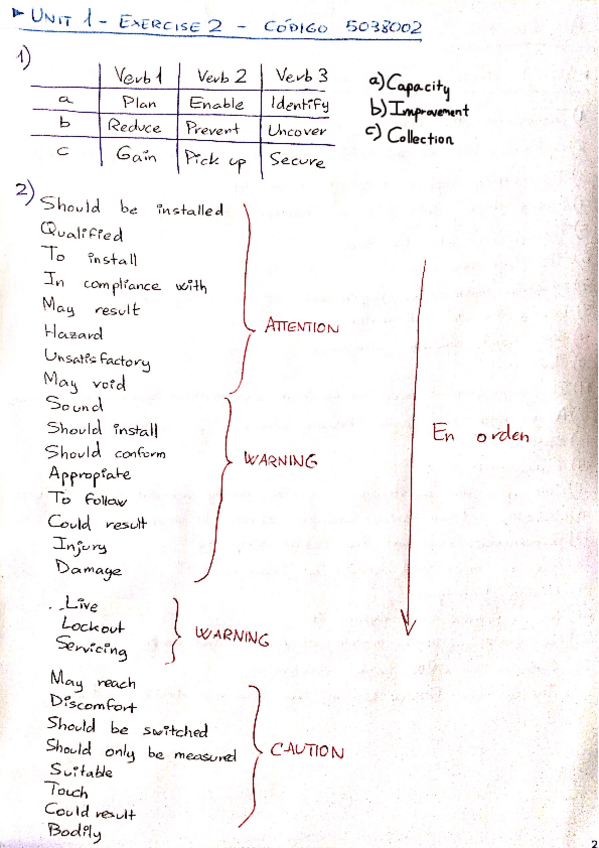 ► UNIT 1 - EXERCISE 2 - CÓDIGO 5038002
1)
Verb 1 Verb 2 Verb 3
a Plan Enable Identify
b Reduce Prevent Uncover
c Gain Pick up Secure
a) Capacity
b) Improvement
c) Collection
2)
Should be installed
Qualified
To install
In compliance with
May result
Hazard
Unsatisfactory
May void
ATTENTION
Sound
Should install
Should conform
Appropiate
To follow
Could result
Injury
Damage
WARNING
Live
Lockout
Servicing
WARNING
May reach
Discomfort
Should be switched
Should only be measured
Suitable
Touch
Could result
Bodily
CAUTION
En orden
2